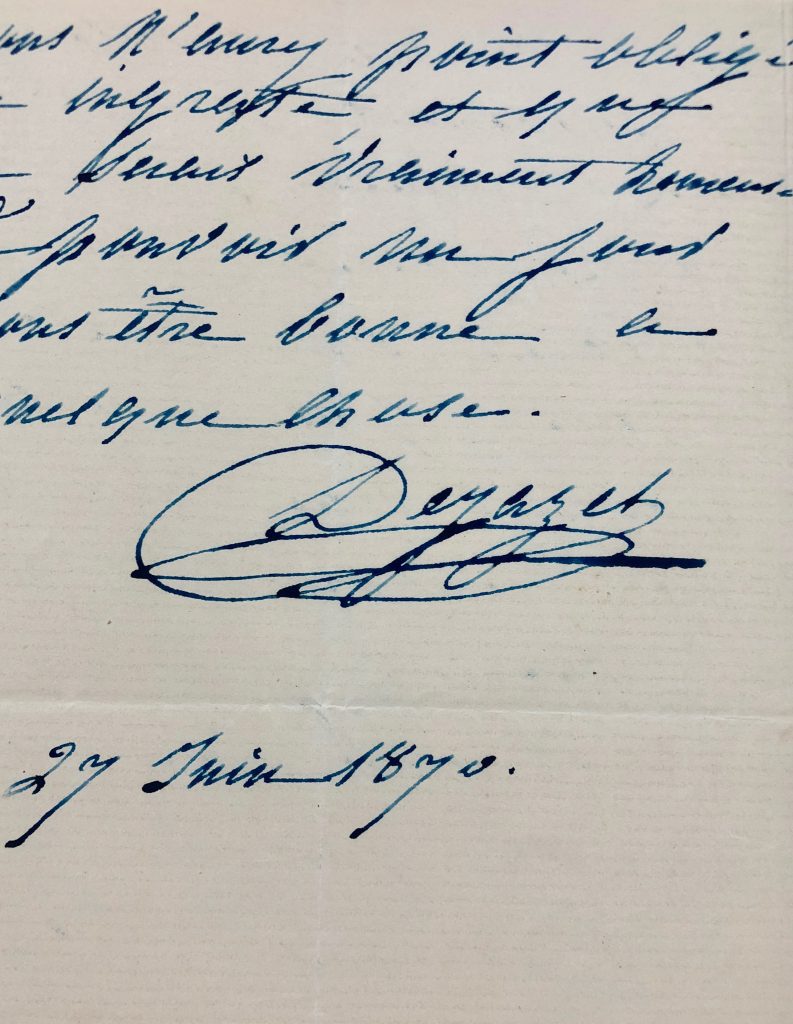 ous n'aurez point obligé
ingrate et que
serais vraiment heureuse
pouvoir un jour
ous être bonne a
uelque chose.
Dejazet
27 Juin 1870.